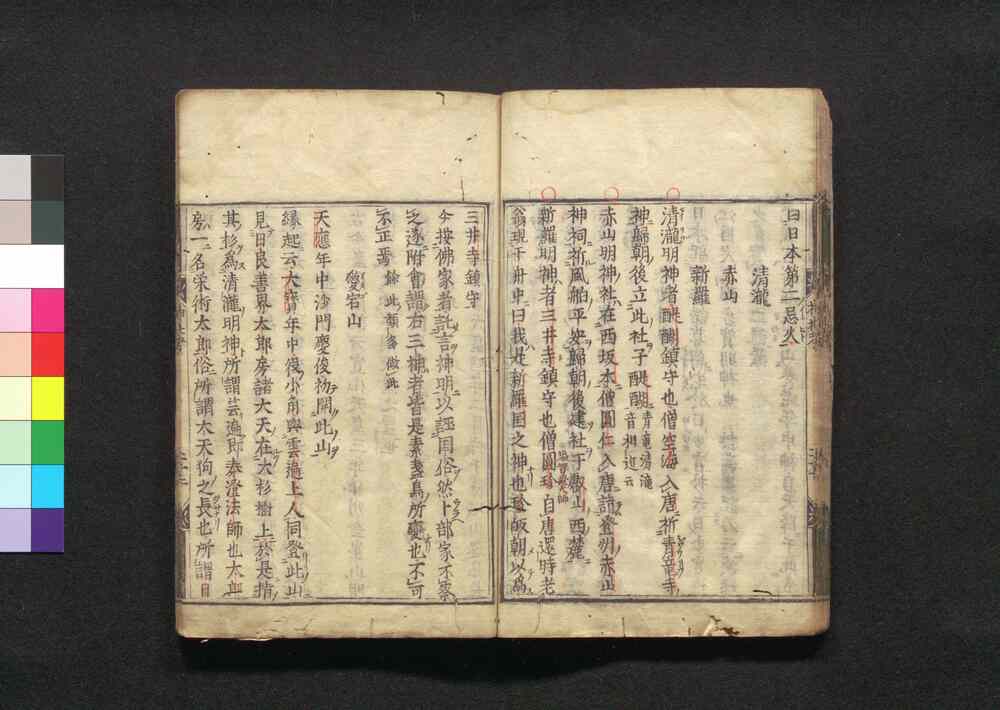 曰日本第二忌火
清瀧
赤山
新羅
清瀧明神者醍醐鎮守也僧空海入唐祈青竜寺
神歸朝後立此社于醍醐青竜清滝音相近云
赤山明神社在西坂本僧圓仁入唐詣登州赤山
神祠祈風舶平安歸朝後建社于叡山西麓
新羅明神者三井寺鎮守也僧圓珍智證大師自唐還時老
翁現于舟中曰我是新羅国之神也珍皈朝以爲
三井寺鎮守
今按佛家者託言神明以誣罔俗然卜部家不察
之遂附會謂右三神者皆是素盞烏所変也不可
不正焉餘此類畧倣此
愛宕山
天應年中沙門慶俊初開此山
縁起云大寶年中役小角與雲遍上人同登此山
見日良善界太郎房諸大天在大杉樹上於是指
其杉爲清瀧明神所謂雲遍即泰澄法師也太郎
房一名栄術太郎俗所謂大天狗之長也所謂日